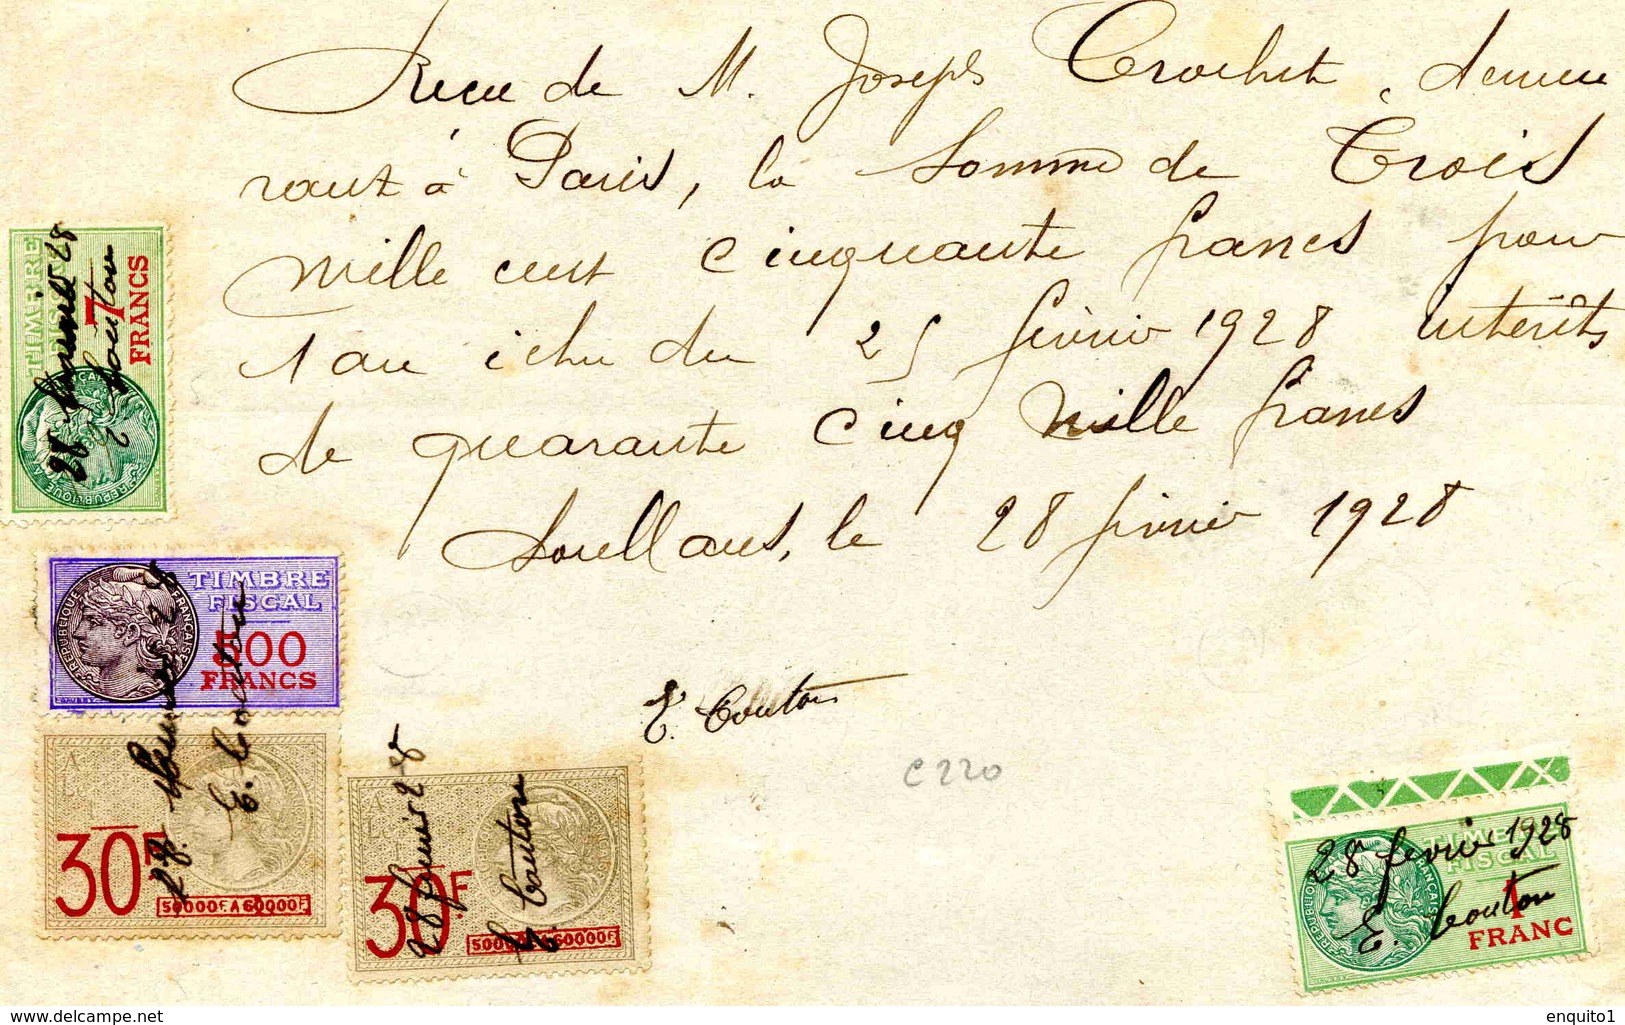 Recu de M. Joseph Crochet, demeu
rant à Paris, la Somme de Trois
mille cent cinquante francs pour
1 an échu du 25 février 1928 intérêts
de quarante cinq mille francs
Soullans, le 28 février 1928
E. Couton
C220
TIMBRE
FISCAL
7
FRANCS
28 février 28
E. Couton
REPUBLIQUE FRANÇAISE
TIMBRE
FISCAL
500
FRANCS
REPUBLIQUE FRANÇAISE
28 février 28
E. Couton
30F
50000F. A 60000F.
30F
50000F. A 60000F.
28 février 28
E. Couton
TIMBRE
FISCAL
1
FRANC
REPUBLIQUE FRANÇAISE
28 février 1928
E. Couton
www.delcampe.net
enquito1